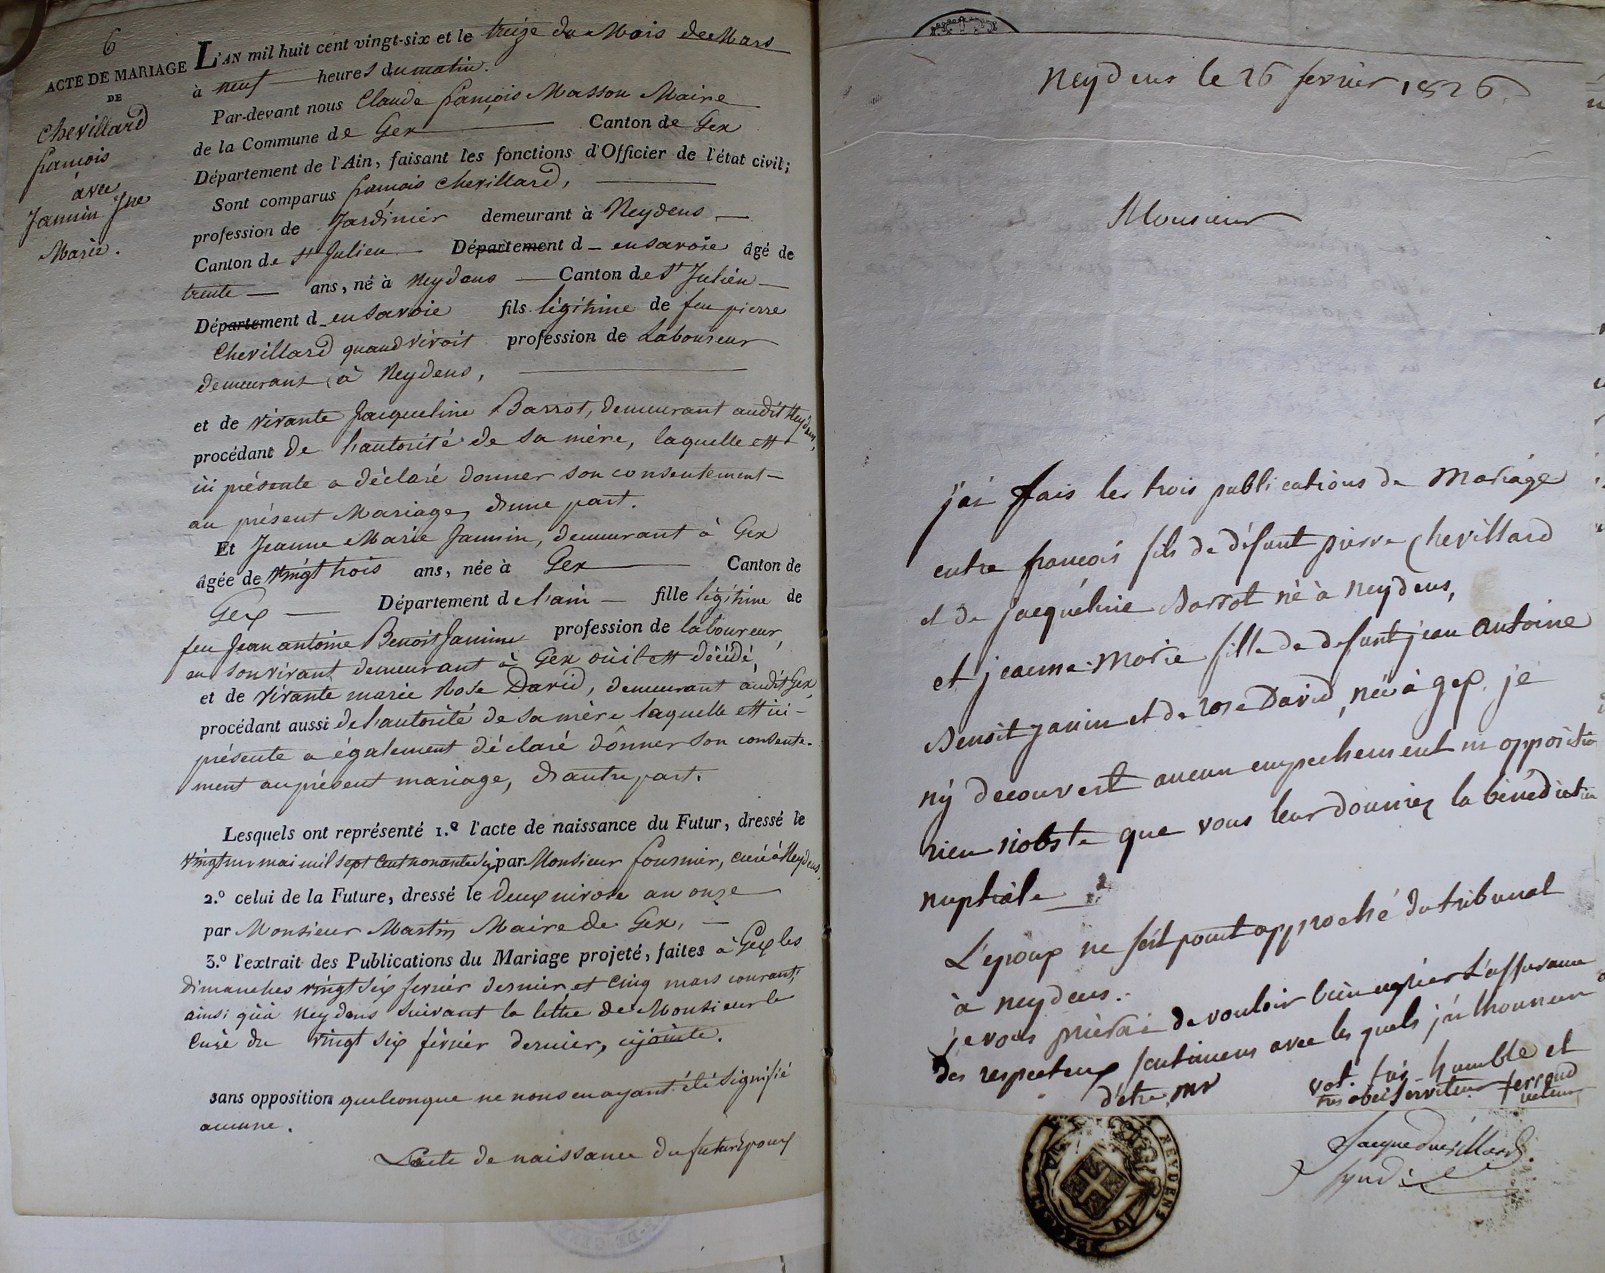 6
ACTE DE MARIAGE
DE
Chevillard
françois
avec
Jannin Jne
Marie.
L'AN mil huit cent vingt-six et le treize du Mois de Mars
à neuf heures du matin.
Par-devant nous Claude françois Masson Maire
de la Commune de Gex Canton de Gex
Département de l'Ain, faisant les fonctions d'Officier de l'état civil;
Sont comparus françois Chevillard,
profession de Jardinier demeurant à Neydens
Canton de St Julien Département d en savoie âgé de
trente ans, né à Neydens Canton de St Julien
Département d en Savoie fils légitime de feu pierre
Chevillard quand vivoit profession de Laboureur
demeurant à Neydens,
et de vivante Jacqueline Barrot, demeurant audit Neydens,
procédant de l'autorité de sa mère, laquelle est
ici présente a déclaré donner son consentement
au présent Mariage, d'une part.
Et Jeanne Marie Jannin, demeurant à Gex
âgée de vingt trois ans, née à Gex Canton de
Gex Département de l'ain fille légitime de
feu Jean antoine Benoit Jannin profession de laboureur,
en son vivant demeurant à Gex où il est décédé,
et de vivante marie Rose David, demeurant audit Gex
procédant aussi de l'autorité de sa mère laquelle est ici
présente a également déclaré donner son consente-
ment au présent mariage, d'autre part.
Lesquels ont représenté 1.º l'acte de naissance du Futur, dressé le
mai mil sept cent nonante six par Monsieur fournier, curé à Neydens,
2.º celui de la Future, dressé le deux nivose an onze
par Monsieur Martin Maire de Gex,
3.º l'extrait des Publications du Mariage projeté, faites à Gex les
dimanches vingt six fevrier dernier et cinq mars courant,
ainsi qu'à Neydens suivant la lettre de Monsieur le
Curé du vingt six février dernier, cijointe.
sans opposition quelconque ne nous en ayant été signifié
aucune.
L'acte de naissance du futur époux
Neydens le 26 fevrier 1826
Monsieur
j'ai fais les trois publications de Mariage
entre francois fils de défunt pierre Chevillard
et de jacquéline Barrot né à Neydens,
et jeanne-Marie fille de defunt jean antoine
Benoit janin et de rose David, née à gex. je
n'y decouvert aucun empechement ni opposition
rien n'obste que vous leur donniez la bénédiction
nuptiale
L'époux ne s'est point approché du tribunal
à neydens.
je vous prierai de vouloir bien agréer l'assurance
des respectueux sentimens avec les quels j'ai l'honneur
d'etre, mr
vot. très humble et
tres obeis serviteur
Jacque
syndic
NEYDENS